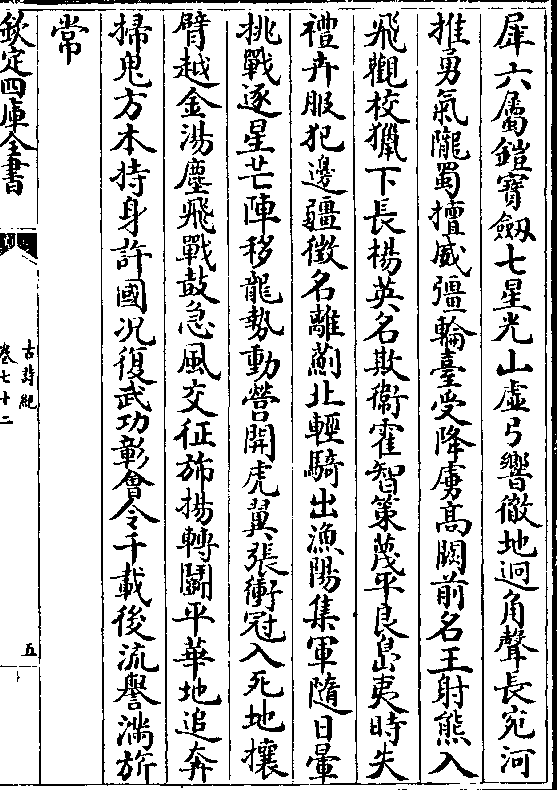 犀六屬鎧寶劔七星光山虚弓響徹地迥角聲長宛河
推勇氣隴蜀擅威彊輪臺受降虜高闕前名王射熊入
飛觀校獵下長楊英名欺衛霍智策蔑平良島夷時失
禮卉服犯邊疆徵名離薊北輕騎出漁陽集軍隨日暈
挑戰逐星芒陣移龍勢動營開虎翼張衝冠入死地攘
臂越金湯塵飛戰鼓急風交征斾揚轉鬬平華地追奔
掃鬼方本持身許國况復武功彰㑹令千載後流譽滿旂
常
欽定四庫全書
古詩紀
卷七十二
五